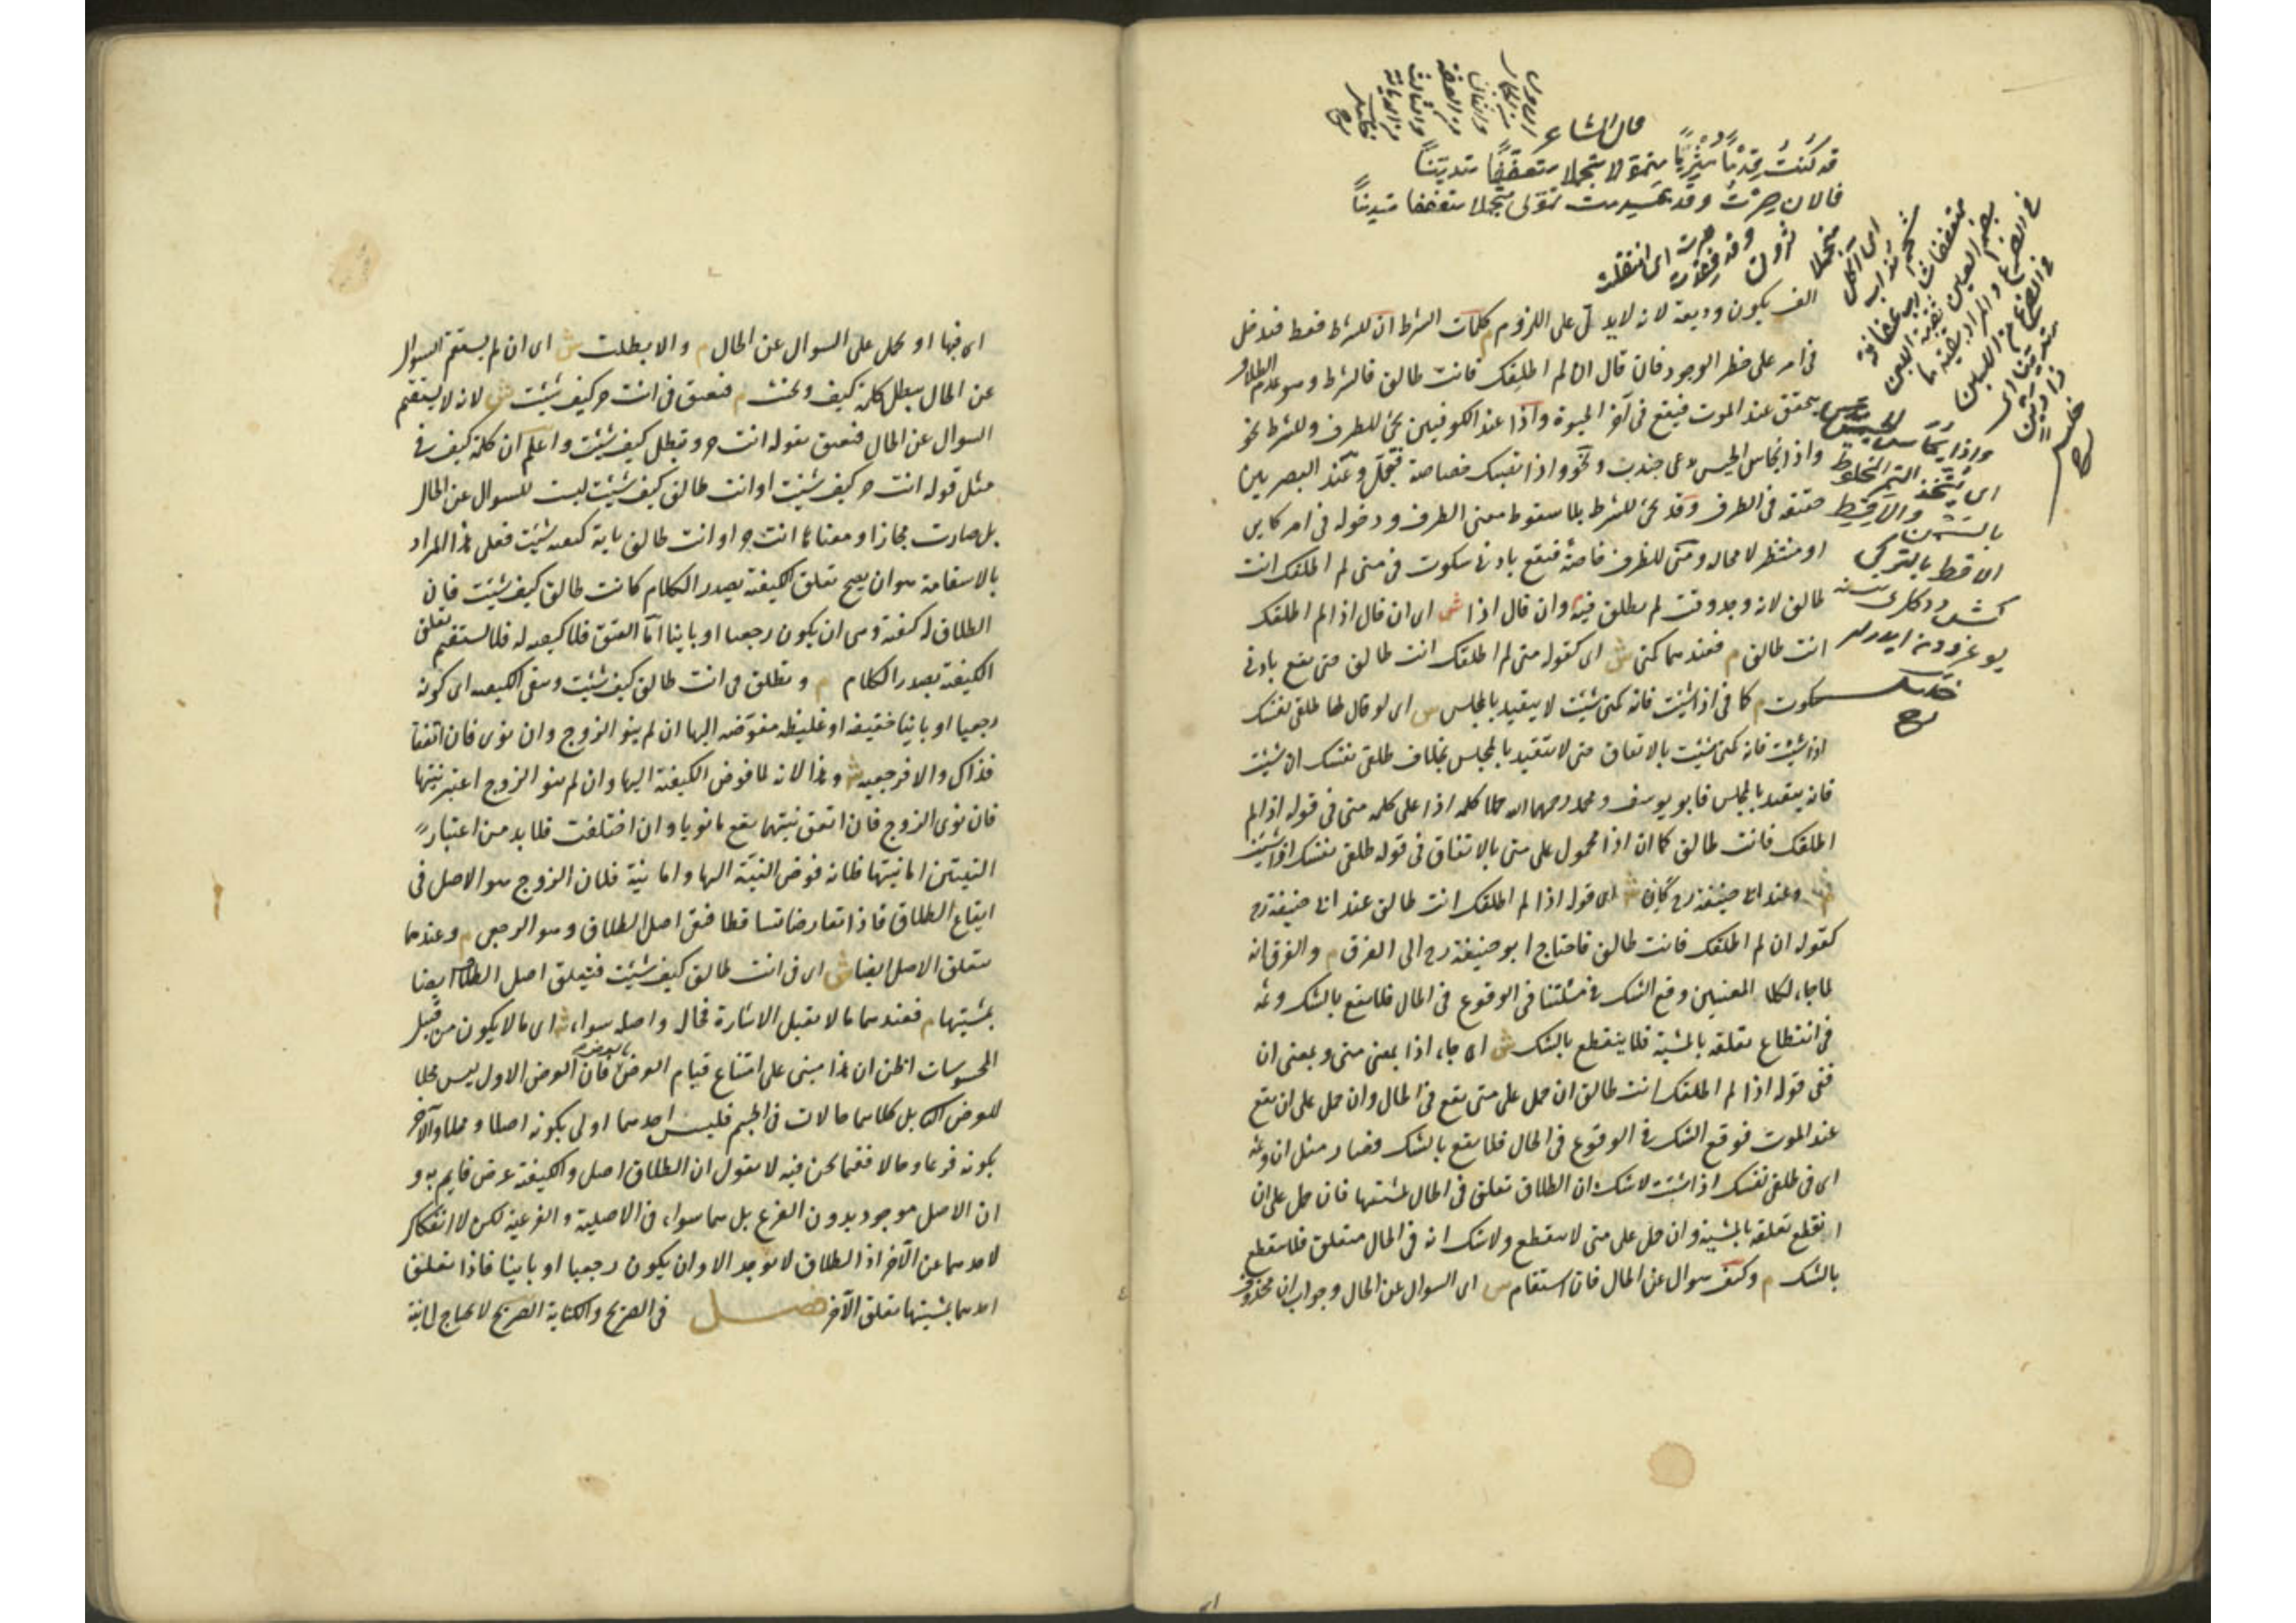 قال الشاعر
قد كنت قدما مثريا متمولا متجملا متعففا متدينا
فالآن صرت وقد عدمت تمولى متجملا متعففا متدينا
الف يكون وديعة لانه لا يدل على اللزوم م كلمات الشرط ان للشرط فقط فتدخل
فى امر على خطر الوجود فان قال ان لم اطلقك فانت طالق فالشرط وهو عدم الطلاق
يتحقق عند الموت فيقع فى آخر الحيوة واذا عند الكوفيين يجئ للظرف وللشرط نحو
واذا يحاس الحيس يدعى جندب ونحو واذا تصبك خصاصة فتجمل وعند البصريين
حقيقة فى الظرف وقد يجئ للشرط بلا سقوط معنى الظرف ودخوله فى امر كاين
او منتظر لا محالة ومتى للظرف خاصة فيقع بادنى سكوت فى متى لم اطلقك انت
طالق لانه وجد وقت لم يطلق فيه وان قال اذا ش اى ان قال اذا لم اطلقك
انت طالق م فعندهما كمتى ش اى كقوله متى لم اطلقك انت طالق حتى يقع بادنى
سكوت م كما فى اذا شئت فانه كمتى شئت لا يتقيد بالمجلس ش اى لو قال لها طلقى نفسك
اذا شئت فانه كمتى شئت بالاتفاق حتى لا يتقيد بالمجلس بخلاف طلقى نفسك ان شئت
فانه يتقيد بالمجلس فابو يوسف ومحمد رحمهما الله حملا كلمة اذا على كلمة متى فى قوله اذا لم
اطلقك فانت طالق كما ان اذا محمول على متى بالاتفاق فى قوله طلقى نفسك اذا شئت
م وعند ابى حنيفة رح كان ش اى قوله اذا لم اطلقك انت طالق عند ابى حنيفة رح
كقوله ان لم اطلقك فانت طالق فاحتاج ابو حنيفة رح الى الفرق م والفرق انه
لما جاء لكلا المعنيين وقع الشك فى مسئلتنا فى الوقوع فى الحال فلا يقع بالشك وثمه
فى انقطاع تعلقه بالمشية فلا ينقطع بالشك ش اى جاء اذا بمعنى متى وبمعنى ان
ففى قوله اذا لم اطلقك انت طالق ان حمل على متى يقع فى الحال وان حمل على ان يقع
عند الموت فوقع الشك فى الوقوع فى الحال فلا يقع بالشك فصار مثل ان وثمه
اى فى طلقى نفسك اذا شئت لا شك ان الطلاق تعلق فى الحال بمشيتها فان حمل على ان
انقطع تعلقه بالمشية وان حمل على متى لا ينقطع ولا شك انه فى الحال متعلق فلا ينقطع
بالشك م وكيف سوال عن الحال فان استقام ش اى السوال عن الحال وجواب ان محذوف
واذا يحاس الحيس
اى يتخذ التمر المخلوط
بالسمن والاقط
متجملا
اى آكل
شحم مذاب
خليل
رح
اى فبها او يحمل على السوال عن الحال م والا بطلت ش اى ان لم يستقم السوال
عن الحال يبطل كلمة كيف ويحنث م فيعتق فى انت حر كيف شئت ش لانه لا يستقيم
السوال عن الحال فيعتق بقوله انت حر ويبطل كيف شئت واعلم ان كلمة كيف فى
مثل قوله انت حر كيف شئت او انت طالق كيف شئت ليست للسوال عن الحال
بل صارت مجازا ومعناها انت حر او انت طالق باية كيفية شئت فعلى هذا المراد
بالاستقامة هو ان يصح تعلق الكيفية بصدر الكلام كانت طالق كيف شئت فان
الطلاق له كيفية وهى ان يكون رجعيا او باينا اما العتق فلا كيفية له فلا يستقيم تعلق
الكيفية بصدر الكلام م وتطلق فى انت طالق كيف شئت وتبقى الكيفية اى كونه
رجعيا او باينا خفيفة او غليظة مفوضة اليها ان لم ينو الزوج وان نوى فان اتفقا
فذاك والا فرجعية ش وهذا لانه لما فوض الكيفية اليها وان لم ينو الزوج اعتبر نيتها
فان نوى الزوج فان اتفق نيتهما يقع ما نويا وان اختلفت فلا بد من اعتبار
النيتين اما نيتها فلانه فوض النية اليها واما نية فلان الزوج هو الاصل فى
ايقاع الطلاق فاذا تعارضا تساقطا فبقى اصل الطلاق وهو الرجعى م وعندهما
يتعلق الاصل ايضا ش اى فى انت طالق كيف شئت فيتعلق اصل الطلاق ايضا
بمشيتها م فعندهما ما لا يقبل الاشارة فحاله واصله سواء ش اى ما لا يكون من قبيل
المحسوسات اظن ان هذا مبنى على امتناع قيام العرض بالعرض فان العرض الاول ليس محلا
للعرض الثانى بل كلاهما حالان فى الجسم فليس احدهما اولى بكونه اصلا ومحلا والآخر
بكونه فرعا وحالا ففيما نحن فيه لا نقول ان الطلاق اصل والكيفية عرض قايم به و
ان الاصل موجود بدون الفرع بل هما سواء فى الاصلية والفرعية لكن لا انفكاك
لاحدهما عن الآخر اذ الطلاق لا يوجد الا وان يكون رجعيا او باينا فاذا تعلق
احدهما بمشيتها تعلق الآخر فصل فى الصريح والكناية الصريح لا يحتاج الى نية